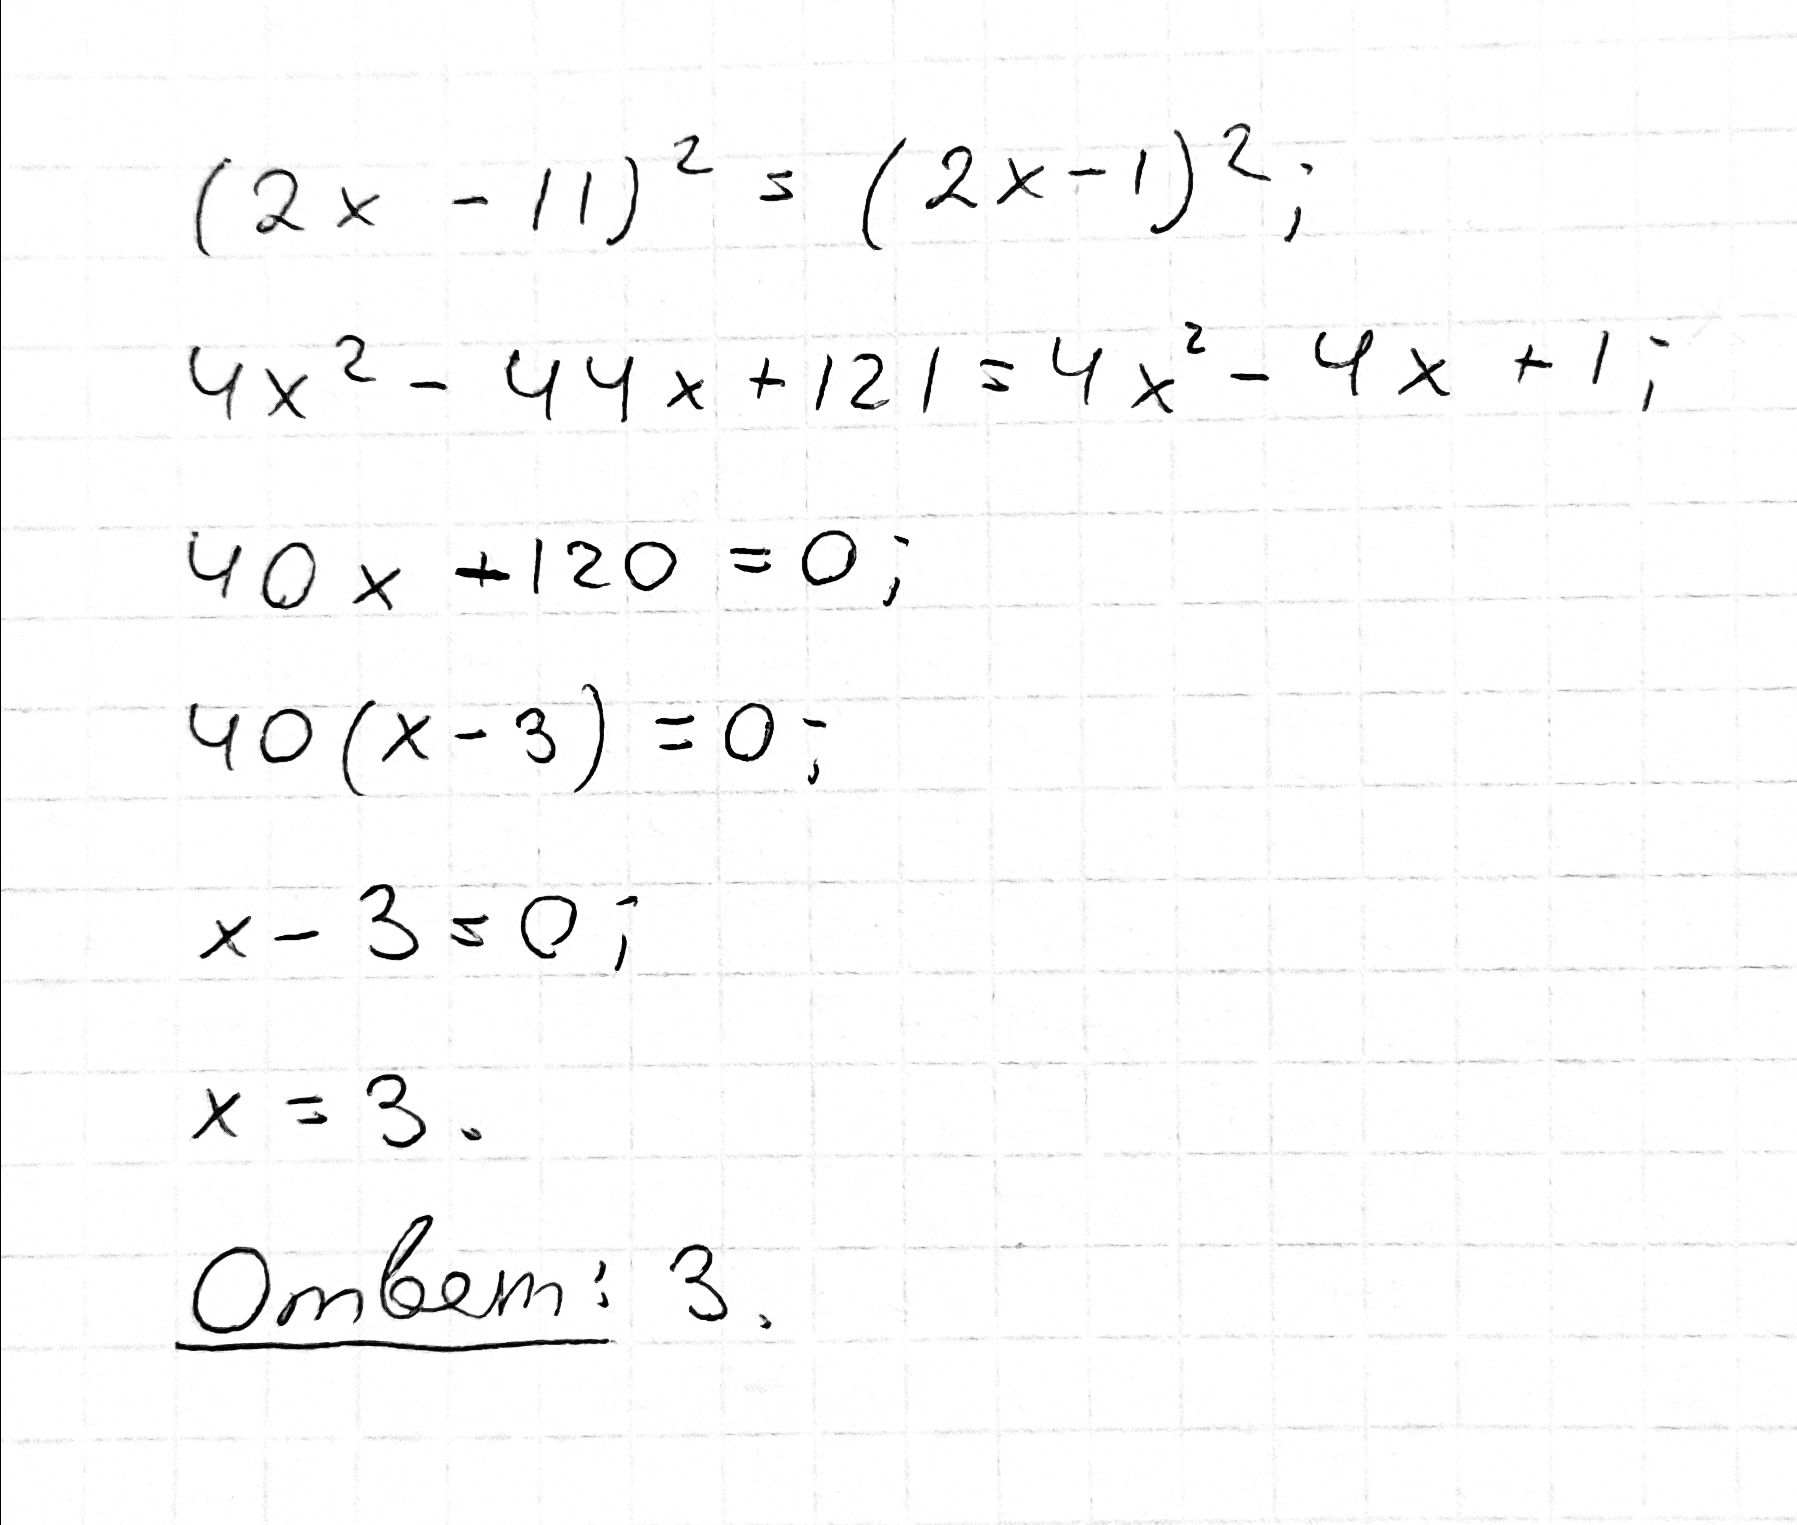 (2x - 11)² = (2x - 1)²;
4x² - 44x + 121 = 4x² - 4x + 1;
40x + 120 = 0;
40(x - 3) = 0;
x - 3 = 0;
x = 3.
Ответ: 3.